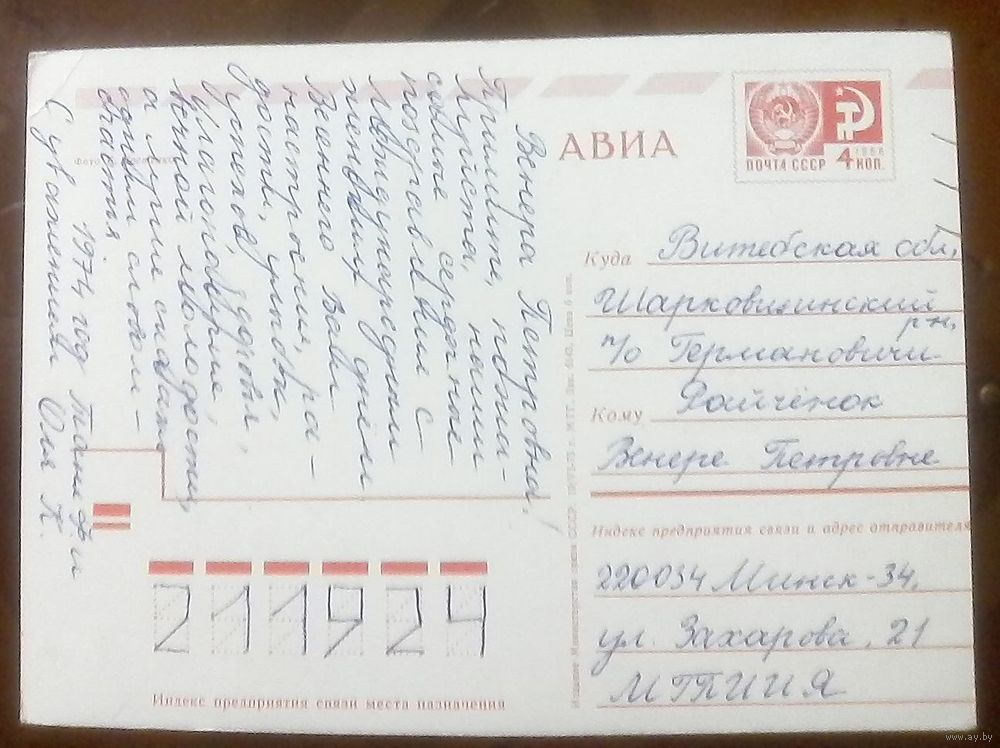 Венера Петровна!
Примите, пожа-
луйста, наши
самые сердечные
поздравления с
Международным
женским днём
Весеннего Вам
настроения, ра-
дости, улыбки,
успехов, здоровья,
благополучия,
вечной молодости,
а лучше сказать
одним словом –
счастья
С уважением Таня Ф. и
Оля К.
1974 год
АВИА
ПОЧТА СССР 4 КОП.
1966
Куда Витебская обл,
Шарковщинский
р-н,
п/о Германовичи
Кому Райчёнок
Венере Петровне
Индекс предприятия связи и адрес отправителя
220034 Минск-34,
ул. Захарова, 21
МГПИИЯ
211924
Индекс предприятия связи места назначения
www.ay.by